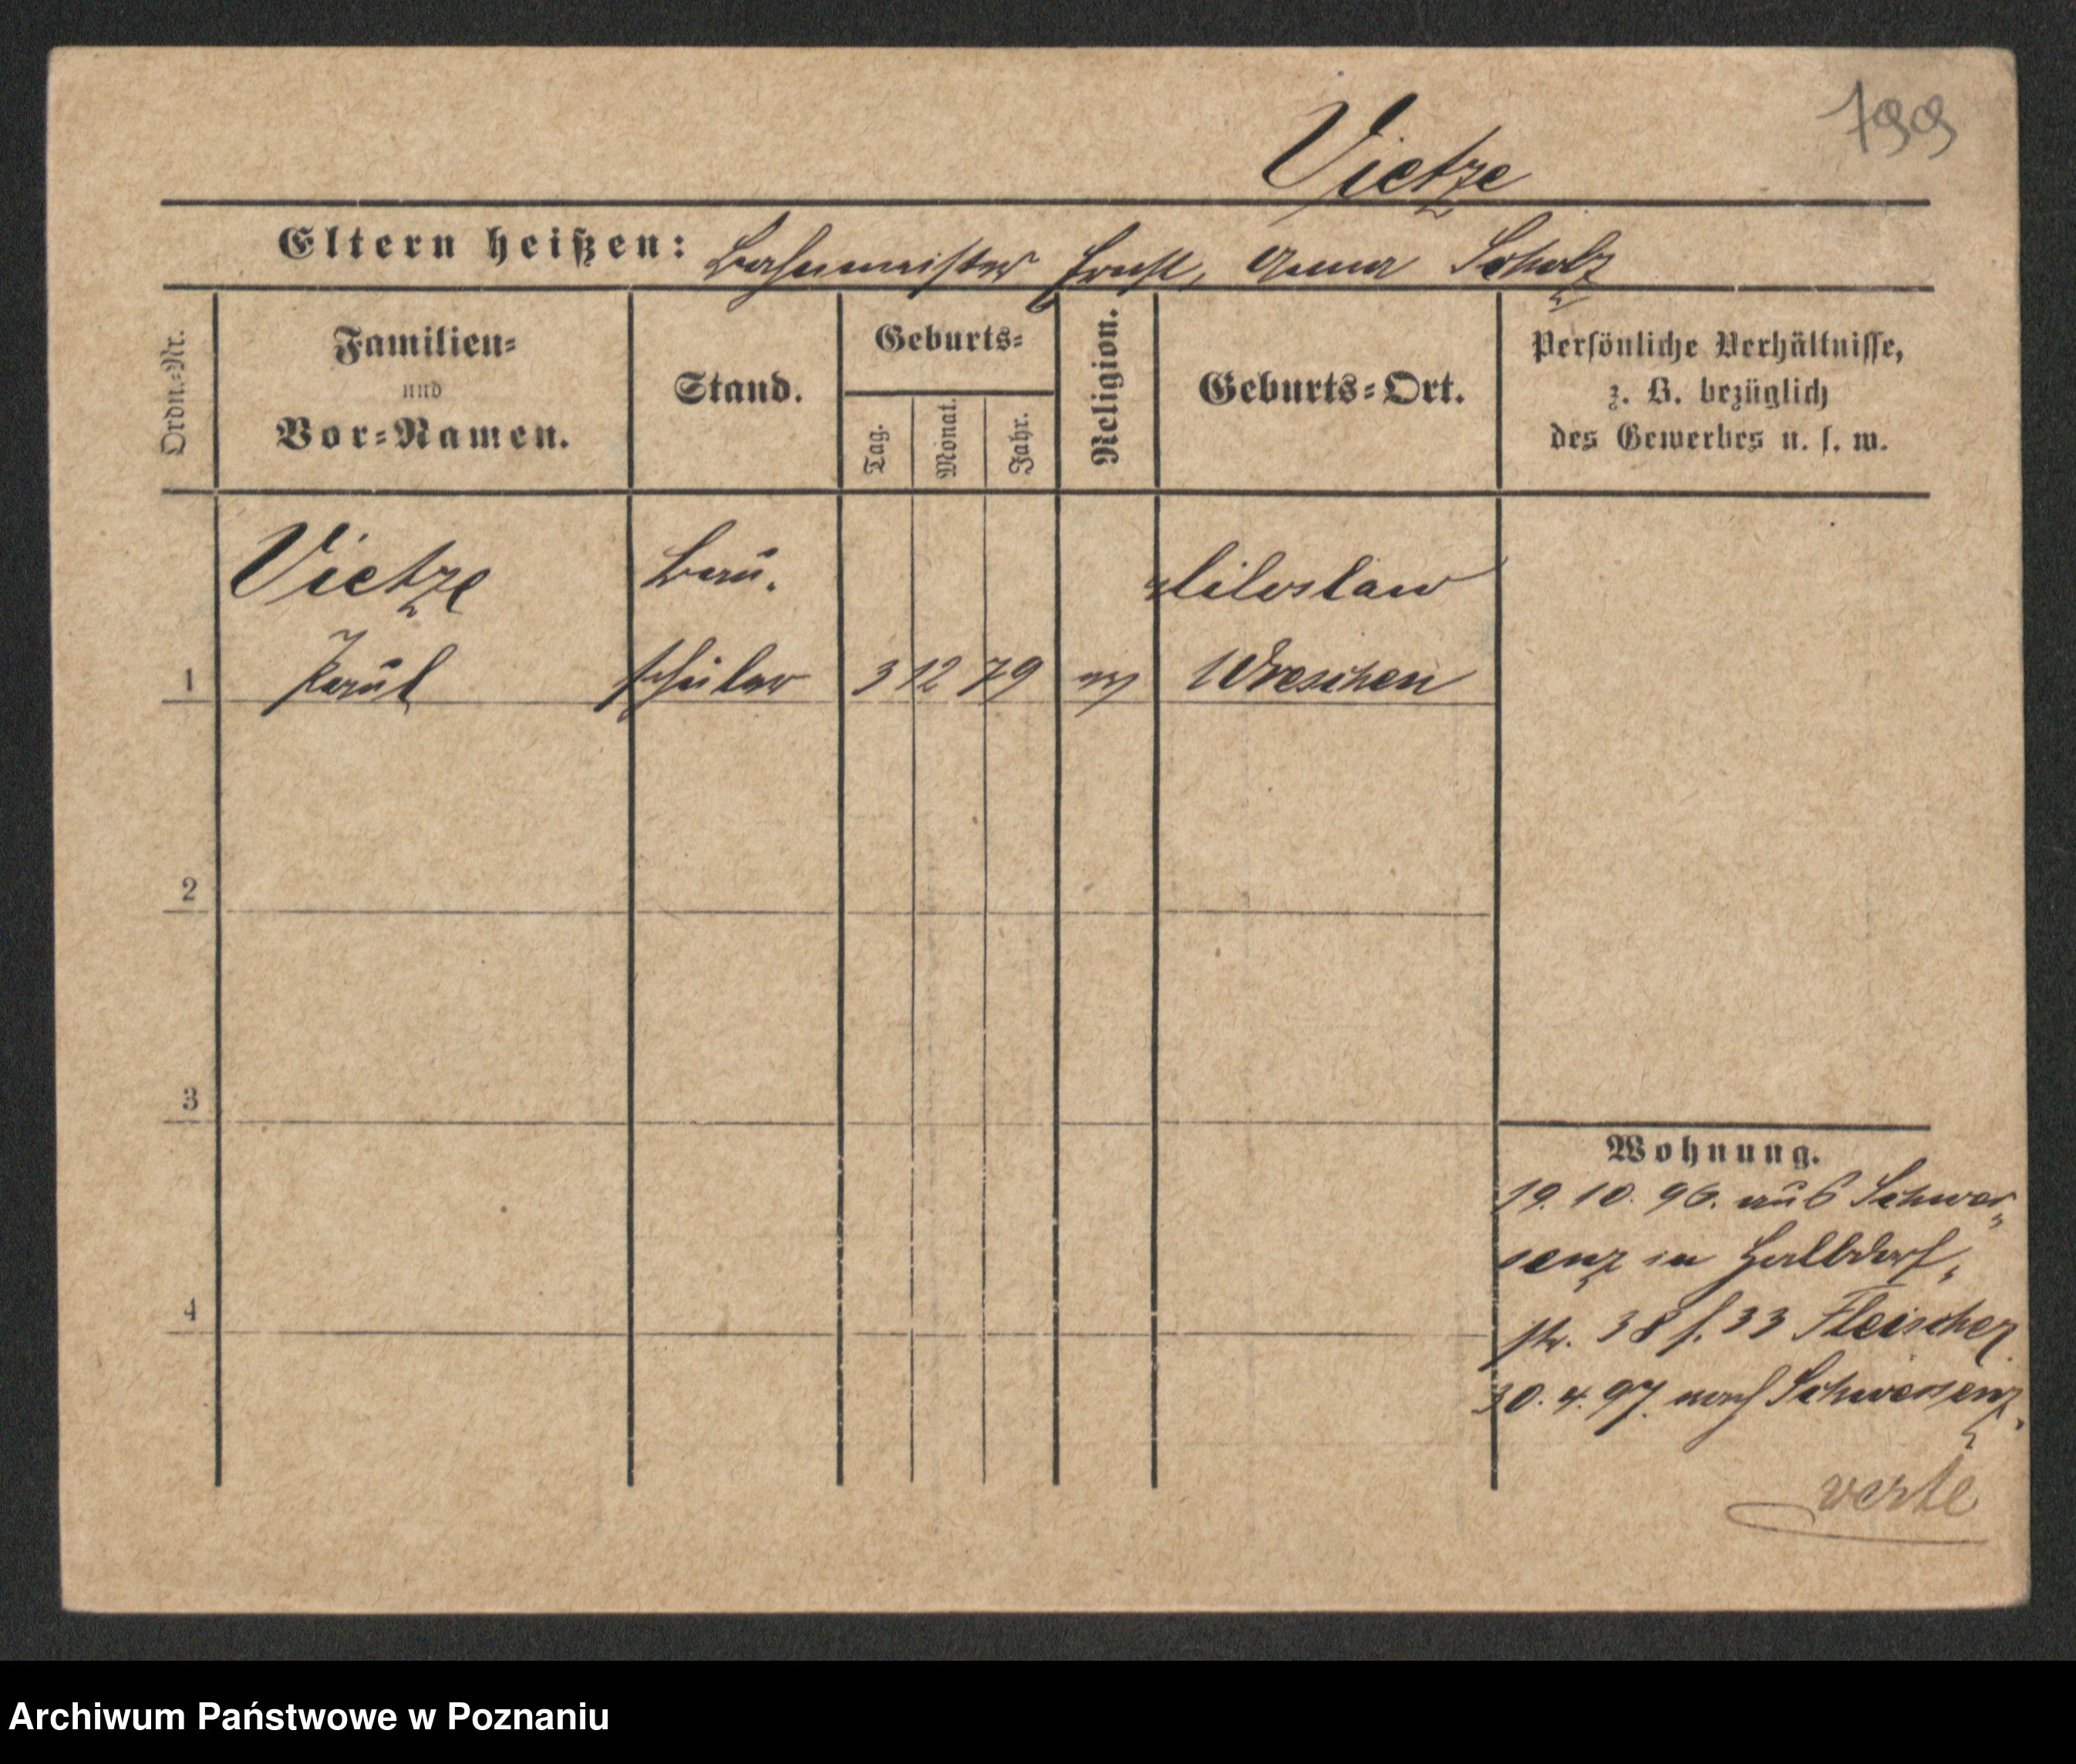 799
Vietze
Eltern heißen: Bahnmeister Ernst, Anna Scholz
Ordn.=Nr.
Familien=
und
Vor=Namen.
Stand.
Geburts=
Tag.
Monat.
Jahr.
Religion.
Geburts=Ort.
Persönliche Verhältnisse,
z. B. bezüglich
des Gewerbes u. s. w.
Vietze Bau. Miloslaw
1 Paul schüler 3 12 79 ev Wreschen
2
3
4
Wohnung.
19. 10. 96. aus Schwer=
senz in Halbdorf=
str. 38 f. 33 Fleischer
30. 4. 97. nach Schwersenz.
verte
Archiwum Państwowe w Poznaniu